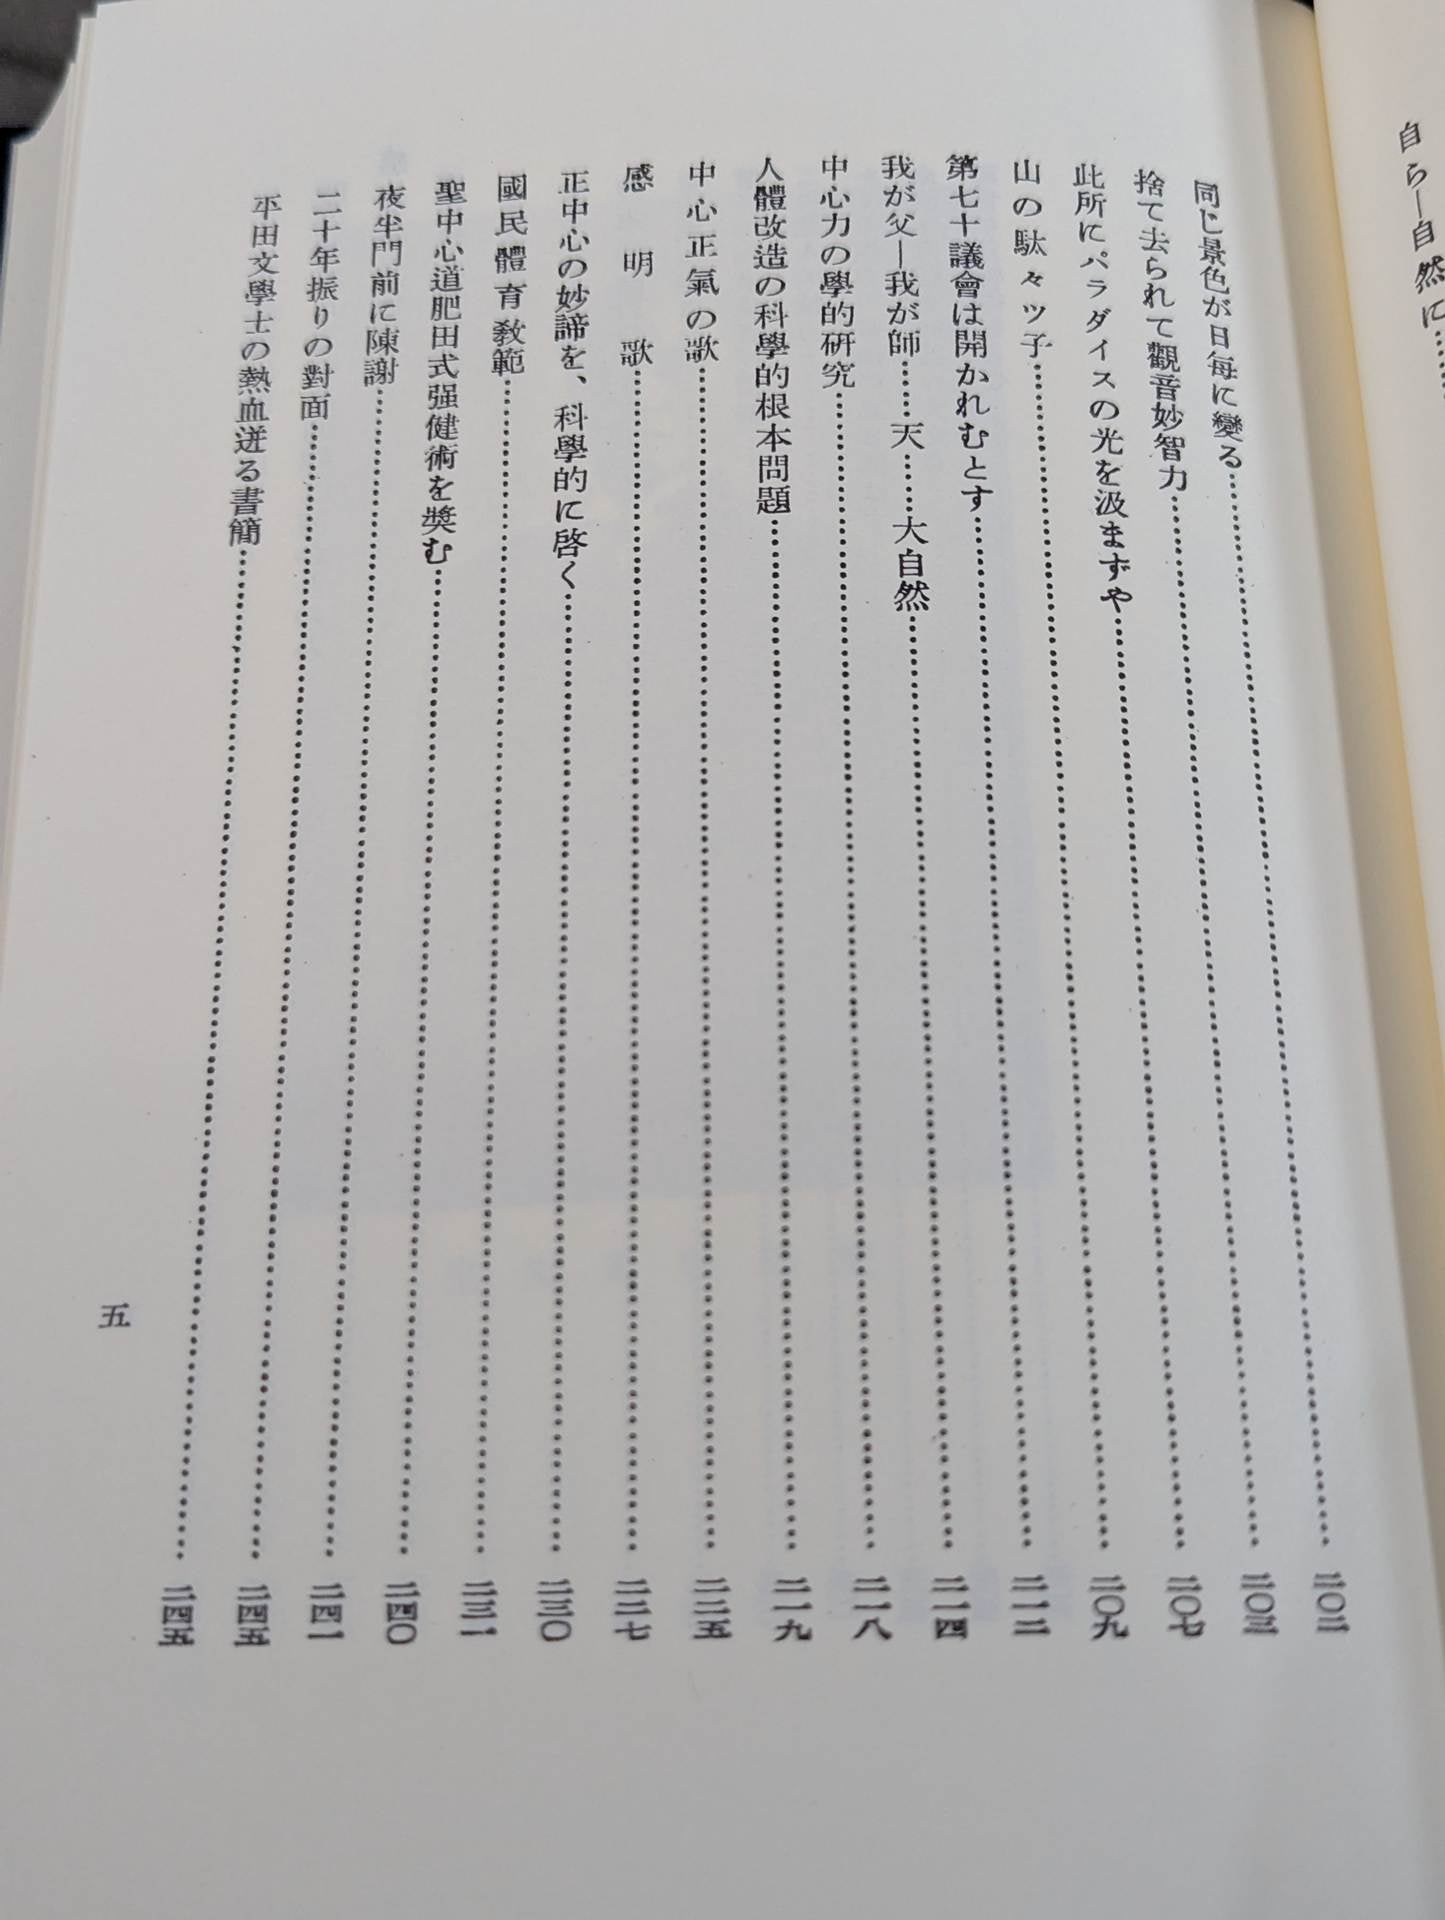 自ら—自然に……
同じ景色が日毎に變る……二〇二
捨て去られて觀音妙智力……二〇三
此所にパラダイスの光を汲まずや……二〇七
山の駄々ツ子……二〇九
第七十議會は開かれむとす……二一二
我が父—我が師……天……大自然……二一四
中心力の學的研究……二一八
人體改造の科學的根本問題……二一九
中心正氣の歌……二二五
感明歌……二二七
正中心の妙諦を、科學的に啓く……二三〇
國民體育教範……二三一
聖中心道肥田式强健術を奬む……二四〇
夜半門前に陳謝……二四一
二十年振りの對面……二四五
平田文學士の熱血迸る書簡……二四五
五